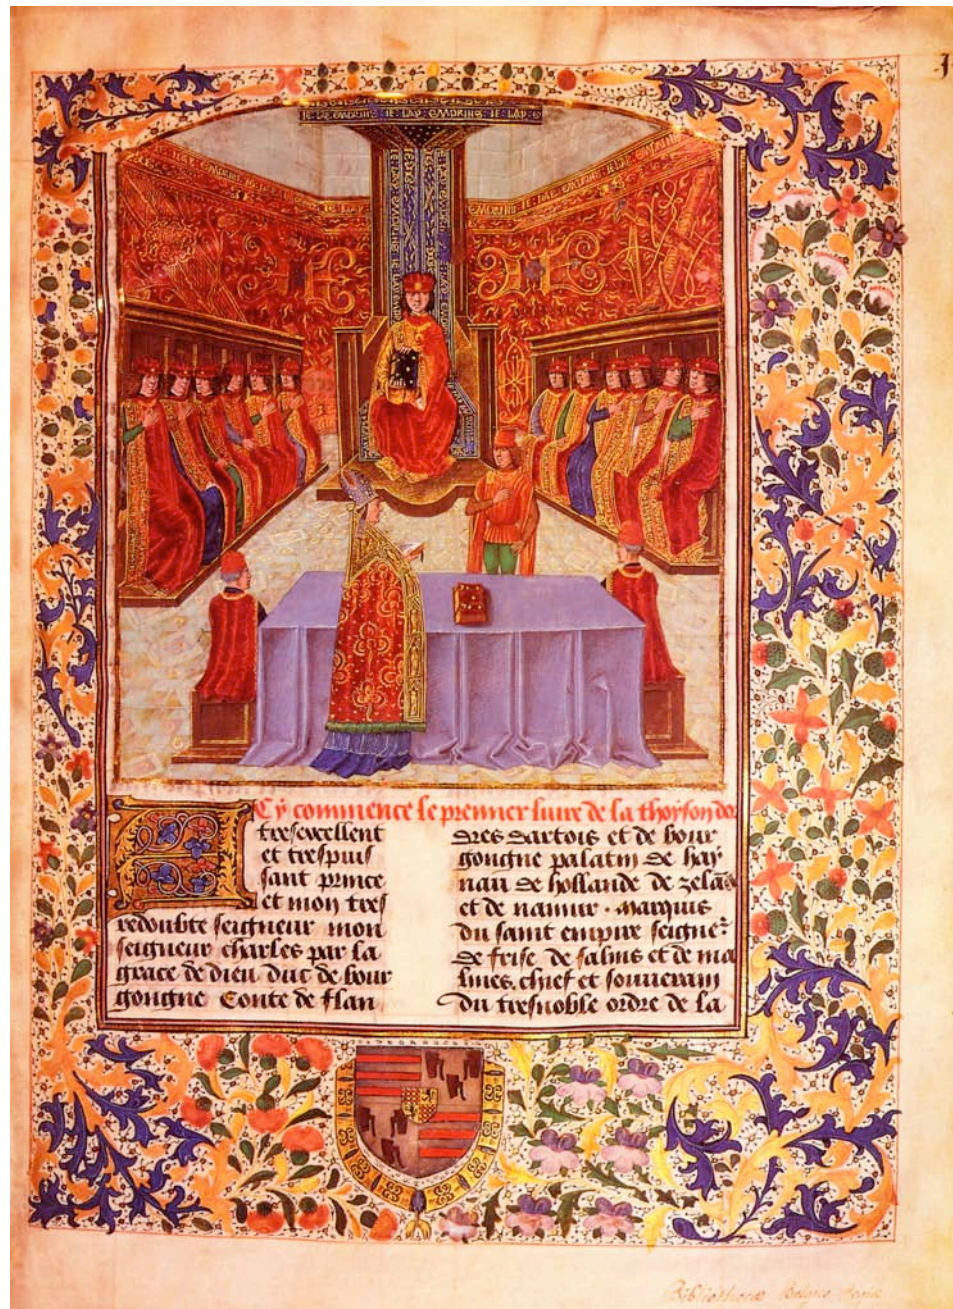 Cy commence le premier livre de la thoyson dor
tresexcellent
et trespuis
sant prince
et mon tres
redoubte seigneur mon
seigneur charles par la
grace de dieu duc de bour
gongne Conte de flan
dres dartois et de bour
gongne palatin de hay
nau de hollande de zelāde
et de namur . marquis
du saint empire seigne
de frise de salins et de ma
lines, chief et souverain
du tresnoble ordre de la